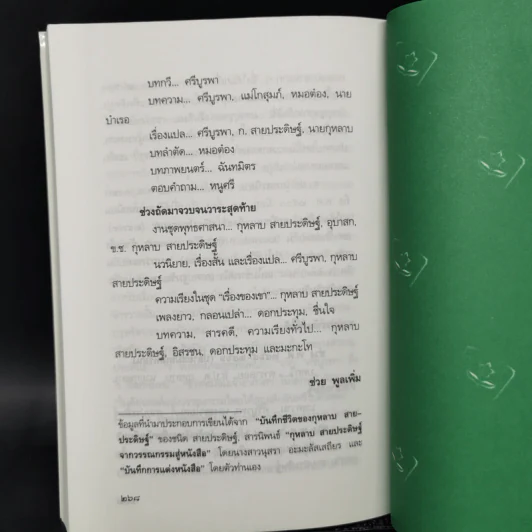 บทกวี... ศรีบูรพา
บทความ... ศรีบูรพา, แม่โกสุมภ์, หมอต๋อง, นาย
บำเรอ
เรื่องแปล... ศรีบูรพา, ก. สายประดิษฐ์, นายกุหลาบ
บทลำตัด... หมอต๋อง
บทภาพยนตร์... ฉันทมิตร
ตอบคำถาม... หนูศรี
ช่วงถัดมาจวบจนวาระสุดท้าย
งานชุดพุทธศาสนา... กุหลาบ สายประดิษฐ์, อุบาสก,
ข.ช. กุหลาบ สายประดิษฐ์
นวนิยาย, เรื่องสั้น และเรื่องแปล... ศรีบูรพา, กุหลาบ
สายประดิษฐ์
ความเรียงในชุด "เรื่องของเขา"... กุหลาบ สายประดิษฐ์
เพลงยาว, กลอนเปล่า... ดอกประทุม, ชื่นใจ
บทความ, สารคดี, ความเรียงทั่วไป... กุหลาบ
สายประดิษฐ์, อิสรชน, ดอกประทุม และมะกะโท
ช่วย พูลเพิ่ม
ข้อมูลที่นำมาประกอบการเขียนได้จาก "บันทึกชีวิตของกุหลาบ สาย-
ประดิษฐ์" ของชนิด สายประดิษฐ์, สารนิพนธ์ "กุหลาบ สายประดิษฐ์
จากวรรณกรรมสู่หนังสือ" โดยนางสาวนุสรา อะมะลัสเสถียร และ
"บันทึกการแต่งหนังสือ" โดยตัวท่านเอง
๒๖๘